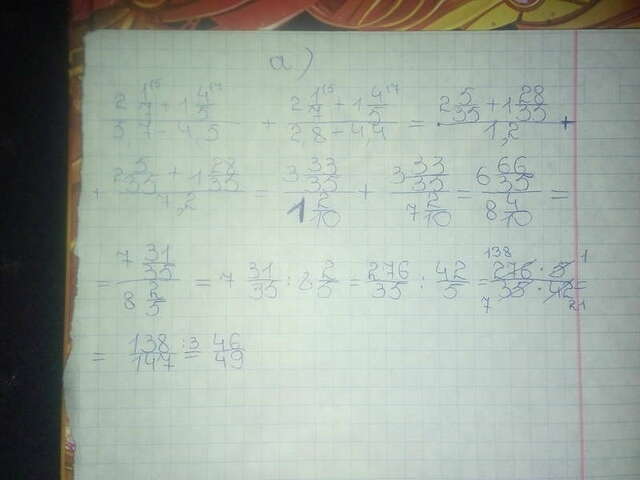 а)
(2 1/7^15 + 1 4/5^17)/(5,7 - 4,5) + (2 1/7^15 + 1 4/5^17)/(2,8 + 4,4) = (2 5/35 + 1 28/35)/1,2 +
+ (2 5/35 + 1 28/35)/7,2 = (3 33/35)/(1 2/10) + (3 33/35)/(7 2/10) = (6 66/35)/(8 4/10) =
= (7 31/35)/(8 2/5) = 7 31/35 : 8 2/5 = 276/35 : 42/5 = (138 276 · 5 1)/(7 35 · 42 21) =
= 138/147 :3 = 46/49